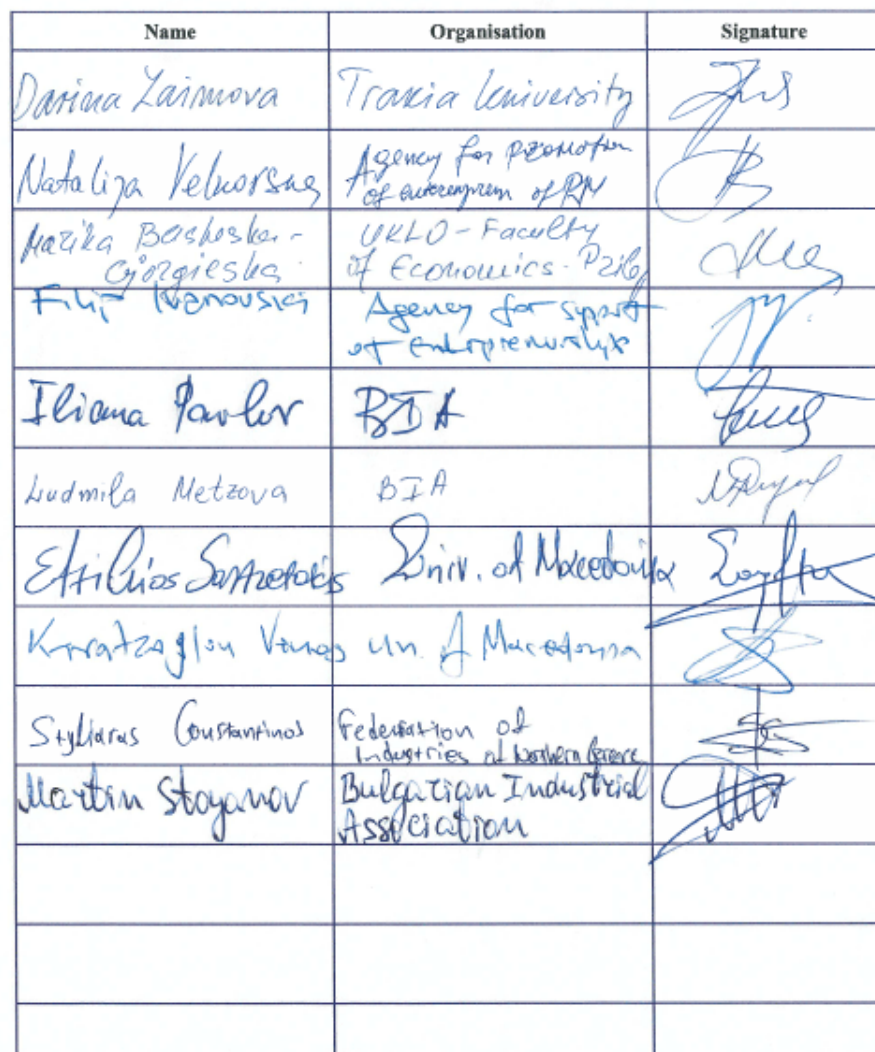 Name Organisation Signature
Darina Zaimova Trakia University
Natalija Agency for promotion
of of RM
Marika Bashoska- UKLO - Faculty
Gjorgieska of Economics - Prilep
Filip Ivanovski Agency for support
of entreprenurship
Iliana Pavlov BIA
Ludmila Metzova BIA
Eftichios Sartzetakis Univ. of Macedonia
Karatzoglou Un. of Macedonia
Styliaras Constantinos Federation of
Industries of Northern Greece
Martin Stoyanov Bulgarian Industrial
Association